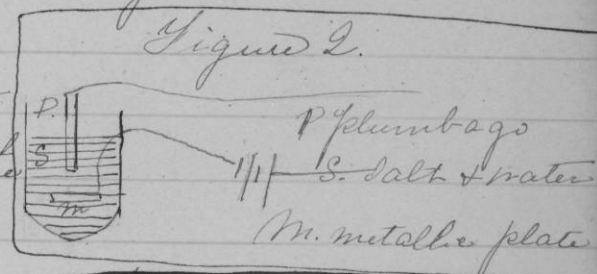 Figure 2.
P.
S
m
P plumbago
S. Salt & water
M. metallic plate